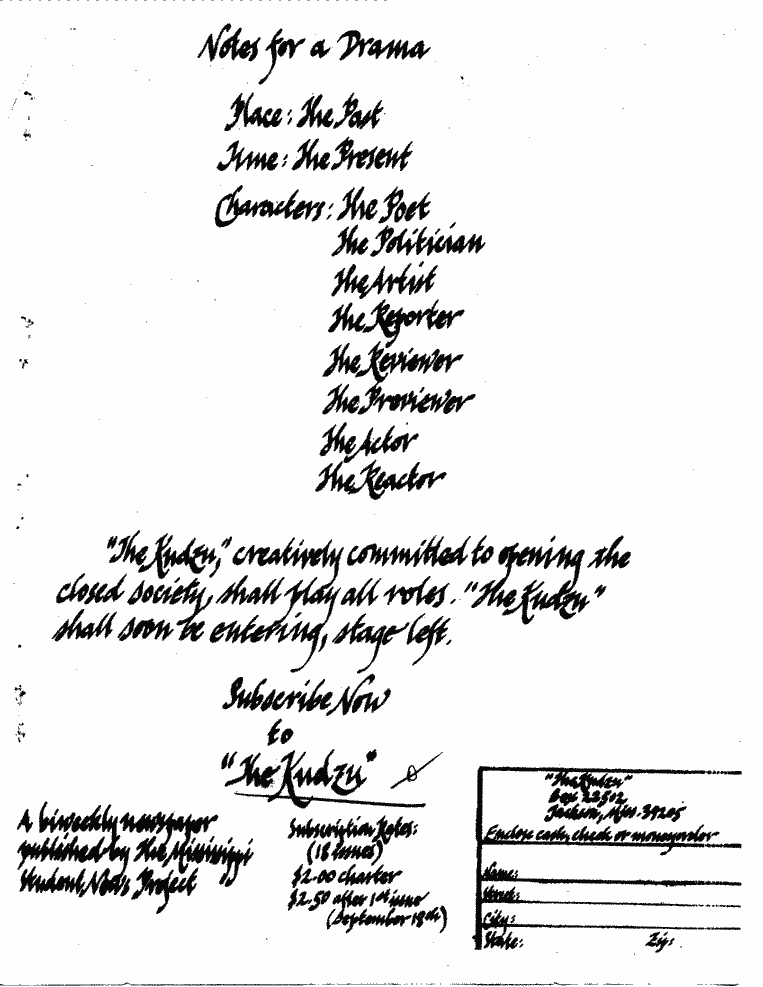 Notes for a Drama
Place: The Past
Time: The Present
Characters: The Poet
The Politician
The Artist
The Reporter
The Reviewer
The Previewer
The Actor
The Reactor
"The Kudzu," creatively committed to opening the
closed society, shall play all roles. "The Kudzu"
shall soon be entering, stage left.
Subscribe Now
to
"The Kudzu"
A biweekly newspaper
published by The Mississippi
Student News Project
Subscription Rates:
(18 issues)
$2.00 charter
$2.50 after 1st issue
(September 18th)
"The Kudzu"
Box 22502
Jackson, Miss. 39205
Enclose cash, check or moneyorder
Name:
Street:
City:
State: Zip: